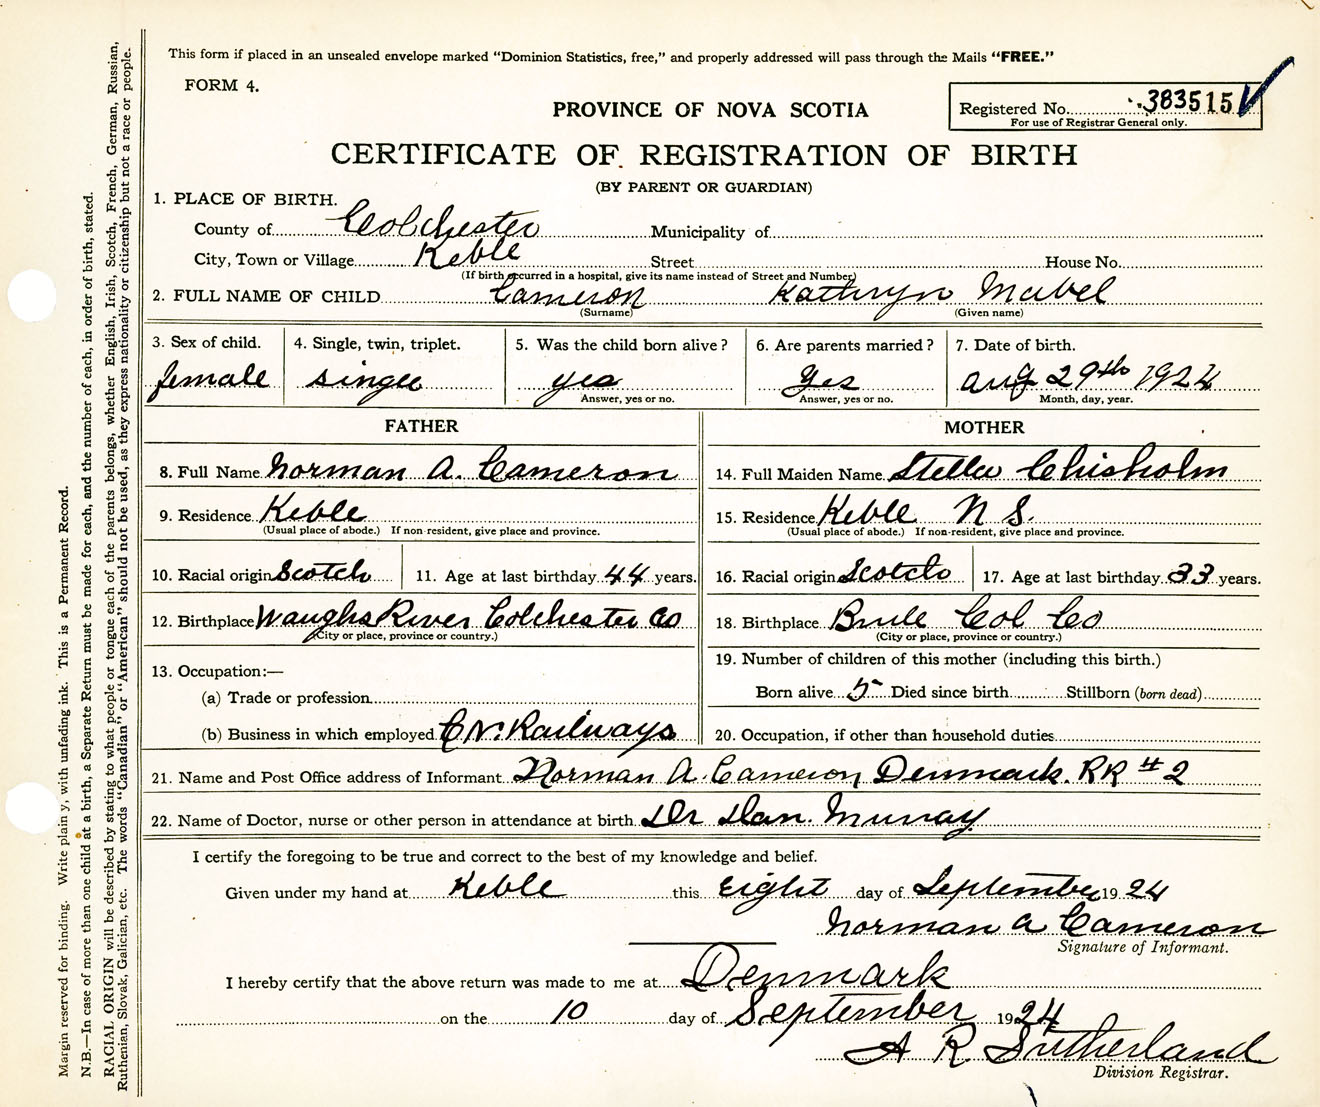 This form if placed in an unsealed envelope marked "Dominion Statistics, free," and properly addressed will pass through the Mails "FREE."
FORM 4.
Registered No. 383515
For use of Registrar General only.
PROVINCE OF NOVA SCOTIA
CERTIFICATE OF REGISTRATION OF BIRTH
(BY PARENT OR GUARDIAN)
1. PLACE OF BIRTH.
County of Colchester Municipality of
City, Town or Village Keble Street House No.
(If birth occurred in a hospital, give its name instead of Street and Number)
2. FULL NAME OF CHILD Cameron Kathryn Mabel
(Surname) (Given name)
3. Sex of child. 4. Single, twin, triplet. 5. Was the child born alive? 6. Are parents married? 7. Date of birth.
female single yes Yes Aug 29th 1924
Answer, yes or no. Answer, yes or no. Month, day, year.
FATHER MOTHER
8. Full Name Norman A. Cameron 14. Full Maiden Name Stella Chisholm
9. Residence Keble 15. Residence Keble N S.
(Usual place of abode.) If non-resident, give place and province. (Usual place of abode.) If non-resident, give place and province.
10. Racial origin Scotch 11. Age at last birthday 44 years. 16. Racial origin Scotch 17. Age at last birthday 33 years.
12. Birthplace Waughs River Colchester Co 18. Birthplace Brule Col Co
(City or place, province or country.) (City or place, province or country.)
13. Occupation:—
(a) Trade or profession
(b) Business in which employed C N. Railways
19. Number of children of this mother (including this birth.)
Born alive 5 Died since birth Stillborn (born dead)
20. Occupation, if other than household duties
21. Name and Post Office address of Informant Norman A. Cameron, Denmark. RR # 2
22. Name of Doctor, nurse or other person in attendance at birth Dr Dan. Murray
I certify the foregoing to be true and correct to the best of my knowledge and belief.
Given under my hand at Keble this eight day of September 1924
Norman A Cameron
Signature of Informant.
I hereby certify that the above return was made to me at Denmark
on the 10 day of September 1924
A R Sutherland
Division Registrar.
Margin reserved for binding. Write plainly, with unfading ink. This is a Permanent Record.
N.B.—In case of more than one child at a birth, a Separate Return must be made for each, and the number of each, in order of birth, stated.
RACIAL ORIGIN will be described by stating to what people or tongue each of the parents belongs, whether English, Irish, Scotch, French, German, Russian,
Ruthenian, Slovak, Galician, etc. The words "Canadian" or "American" should not be used, as they express nationality or citizenship but not a race or people.